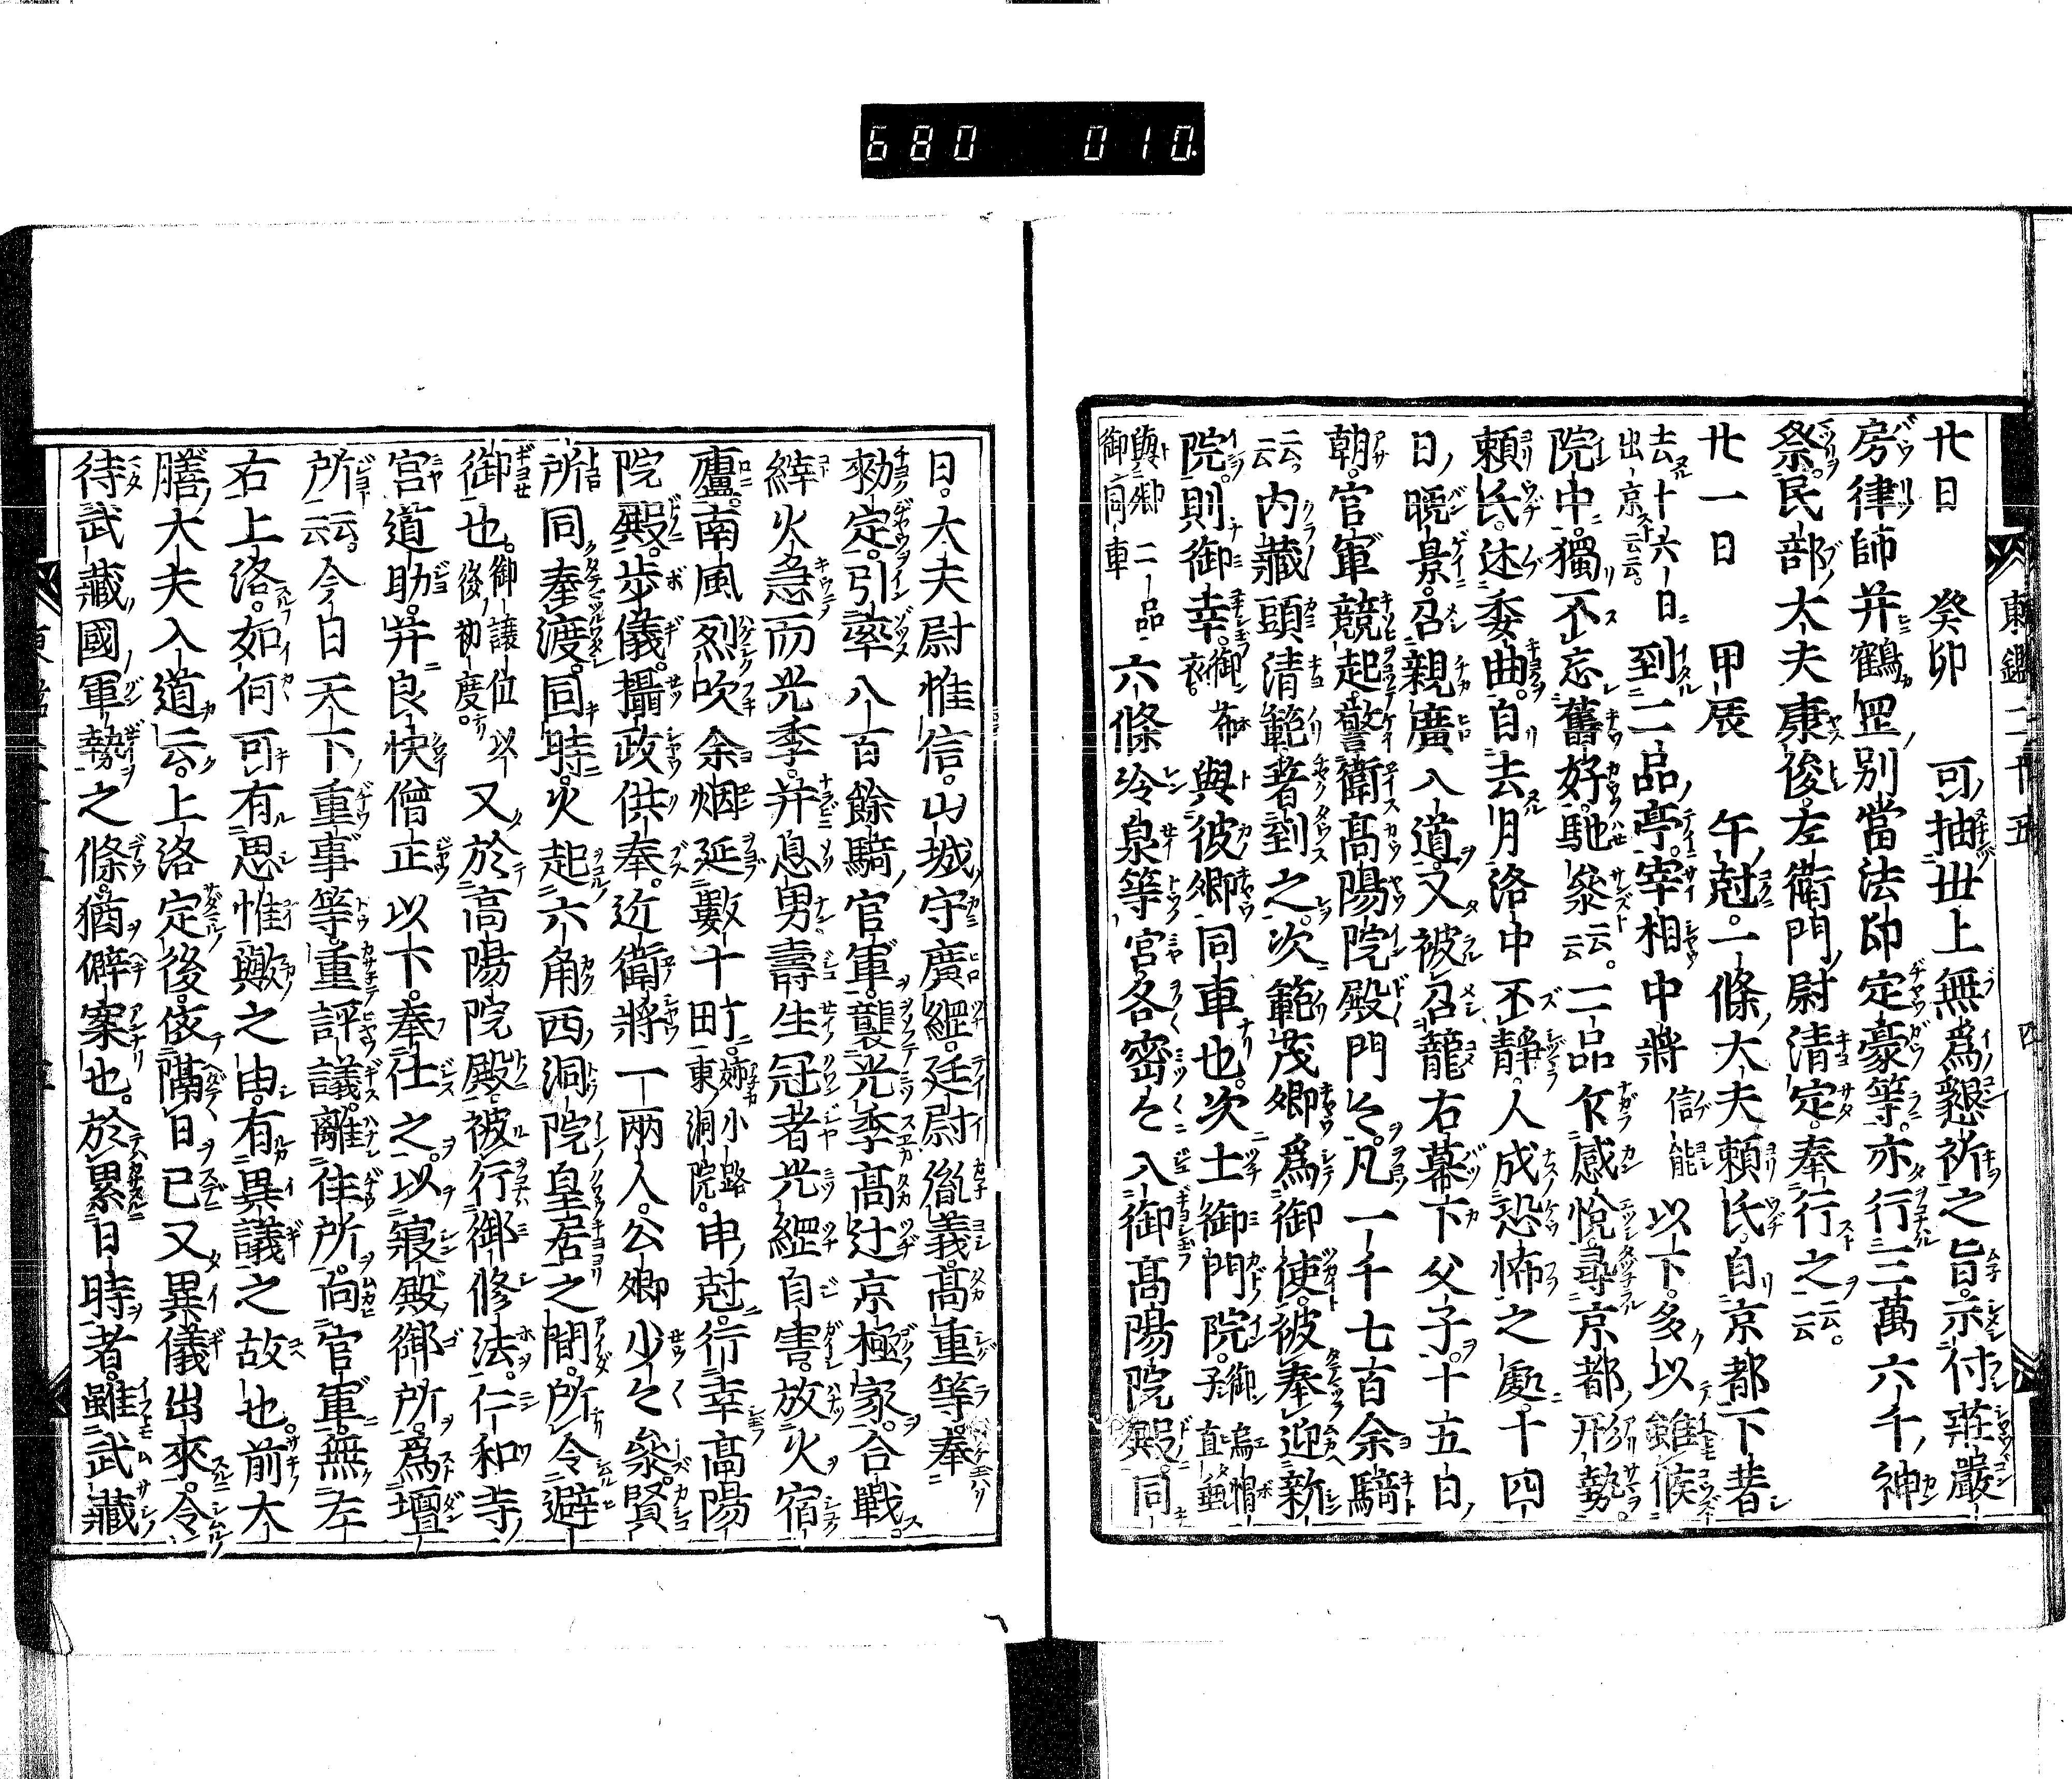 680 010.
東鑑二十五 四
廿日 癸卯 可抽丗上無爲懇祈之旨。示付莊嚴
房律師并鶴岡別當法印定豪等。亦行三萬六千神
祭。民部大夫康俊。左衛門尉清定。奉行之云云。
廿一日 甲辰 午尅。一條大夫頼氏。自京都下著
去十六日出京云云。 到二品亭。宰相中將 信能 以下。多以雖候
院中。獨不忘舊好。馳參云云。二品乍感悅。尋京都形勢。
頼氏。述委曲。自去月洛中不靜。人成恐怖之處。十四
日晩景。召親廣入道。又被召籠右幕下父子。十五日
朝。官軍競起。警衛高陽院殿門々。凡一千七百余騎
云云。内藏頭清範著到之。次範茂卿爲御使。被奉迎新
院。則御幸。御布衣。 與彼卿同車也。次土御門院。御烏帽子直垂
與彼卿御同車 二品 六條冷泉等宮各密々入御高陽院殿。同
日。大夫尉惟信。山城守廣綱。廷尉胤義。高重等。奉
勅定。引率八百餘騎官軍。襲光季高辻京極家。合戰。
縡火急而光季。并息男壽生冠者光綱自害。放火宿
廬。南風烈吹余烟延數十町。姉小路東洞院。 申尅。行幸高陽
院殿。歩儀。攝政供奉。近衛將一兩人。公卿少々參。賢
所同奉渡。同時。火起六角西洞院皇居之間。所令避
御也。御讓位以後初度。 又於高陽院殿被行御修法。仁和寺
宮道助。并良快僧正以下。奉仕之。以寢殿御所。爲壇
所云云。今日天下重事等。重評議。離住所。向官軍。無左
右上洛。如何可有思惟歟之由。有異議之故也。前大
膳大夫入道云。上洛定後。依隔日已又異儀出來。令
待武藏國軍勢之條。猶僻案也。於累日時者。雖武藏